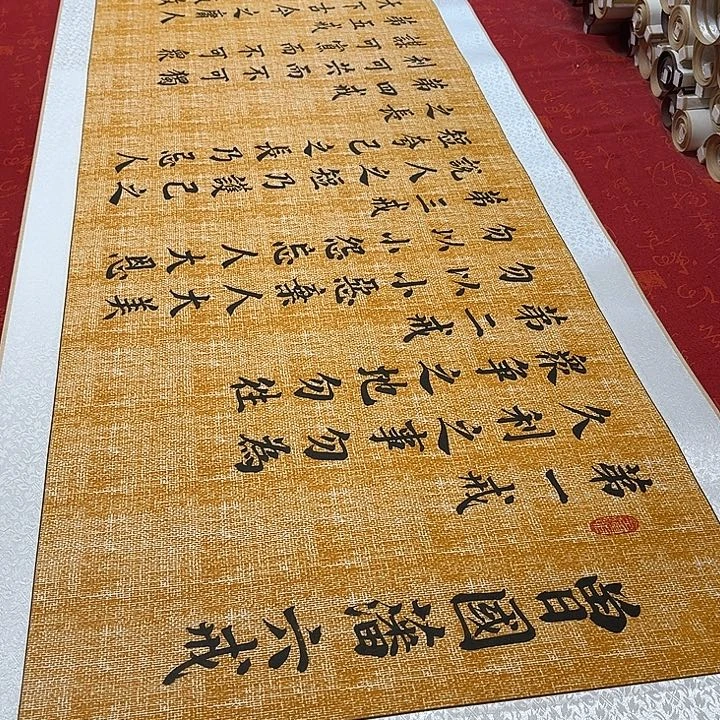 曾國藩六戒
第一戒
久利之事勿為
眾爭之地勿往
第二戒
勿以小惡棄人大美
勿以小怨忘人大恩
第三戒
說人之短乃護己之
短夸己之長乃忌人
之長
第四戒
利可共而不可獨
謀可寡而不可眾
第五戒
天下古今之庸人